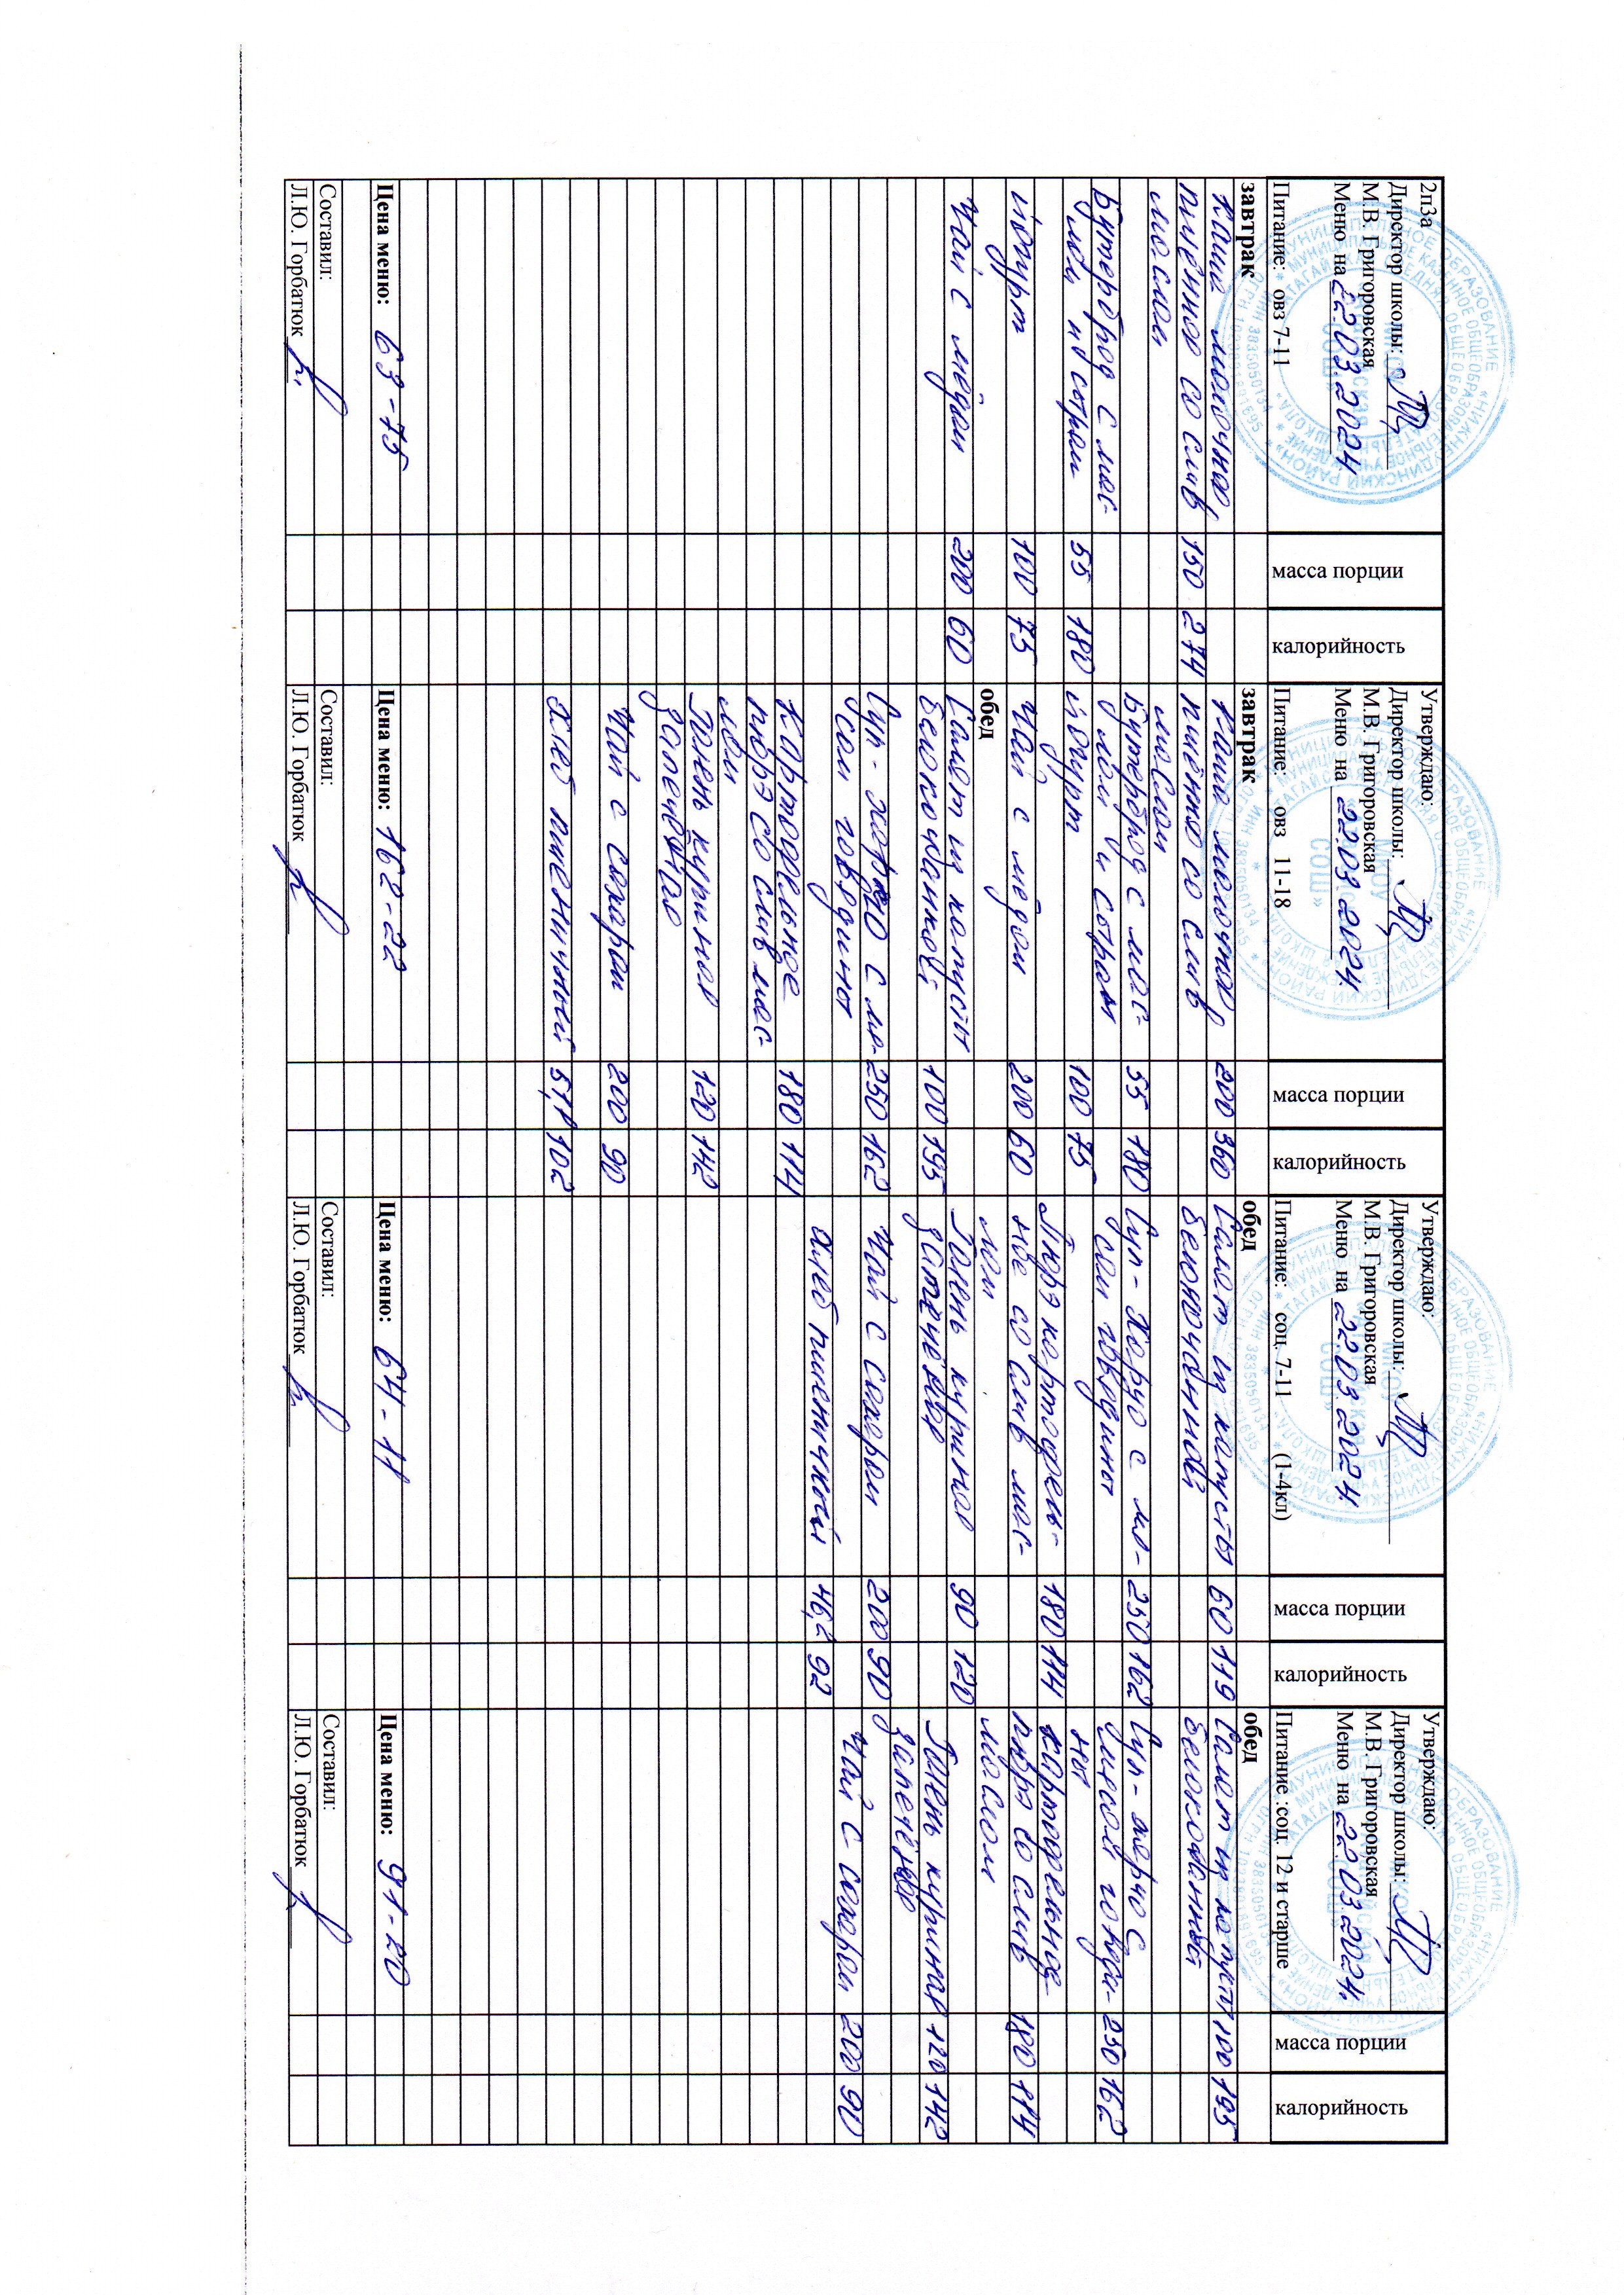 2п3а
Директор школы:
М.В. Григоровская
Меню на 22.03.2024
Питание: овз 7-11
масса порции
калорийность
завтрак
Каша молочная
пшённая со слив 150 274
маслом
Бутерброд с мас-
лом и сыром 55 180
йогурт 100 75
Чай с мёдом 200 60
Цена меню: 63-75
Составил:
Л.Ю. Горбатюк
Утверждаю:
Директор школы:
М.В. Григоровская
Меню на 22.03 2024
Питание: овз 11-18
масса порции
калорийность
завтрак
Каша молочная 200 360
пшённая со слив
маслом
Бутерброд с мас- 55 180
лом и сыром
йогурт 100 75
Чай с мёдом 200 60
обед
Салат из капусты
белокочанной 100 195
Суп-харчо с мя- 250 162
сом говядины
Картофельное 180 114
пюре со слив мас-
лом
Голень куриная 120 142
запечёная
Чай с сахаром 200 90
Хлеб пшеничный 51,1 102
Цена меню: 162-22
Составил:
Л.Ю. Горбатюк
Утверждаю:
Директор школы:
М.В. Григоровская
Меню на 22.03.2024
Питание: соц. 7-11 (1-4кл)
масса порции
калорийность
обед
Салат из капусты 60 119
белокочанной
Суп-харчо с мя- 250 162
сом говядины
Пюре картофель- 180 114
ное со слив мас-
лом
Голень куриная 90 120
запечённая
Чай с сахаром 200 90
Хлеб пшеничный 46,2 92
Цена меню: 64-11
Составил:
Л.Ю. Горбатюк
Утверждаю:
Директор школы:
М.В. Григоровская
Меню на 22.03.2024
Питание :соц. 12 и старше
масса порции
калорийность
обед
Салат из капусты 100 195
белокочанной
Суп-харчо с
мясом говяди- 250 162
ны
Картофельное
пюре со слив 180 114
маслом
Голень куриная 120 142
запечёная
Чай с сахаром 200 90
Цена меню: 91-20
Составил:
Л.Ю. Горбатюк